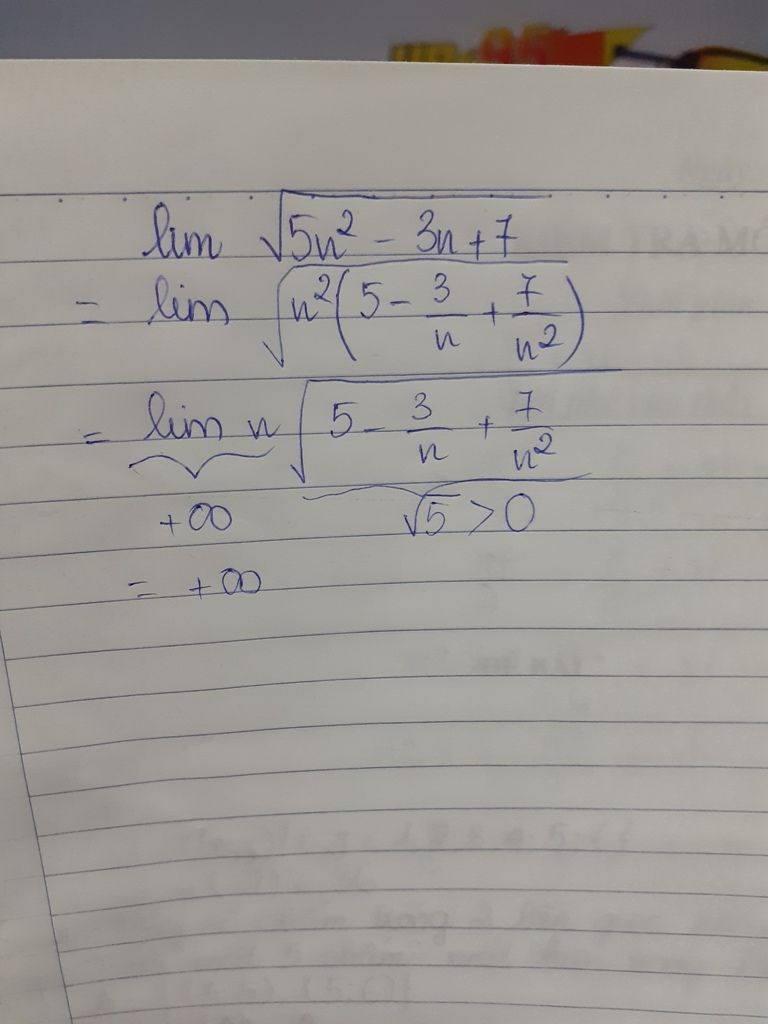 lim √(5n² - 3n + 7)
= lim √(n²(5 - 3/n + 7/n²))
= lim n √(5 - 3/n + 7/n²)
+∞ √5 > 0
= +∞